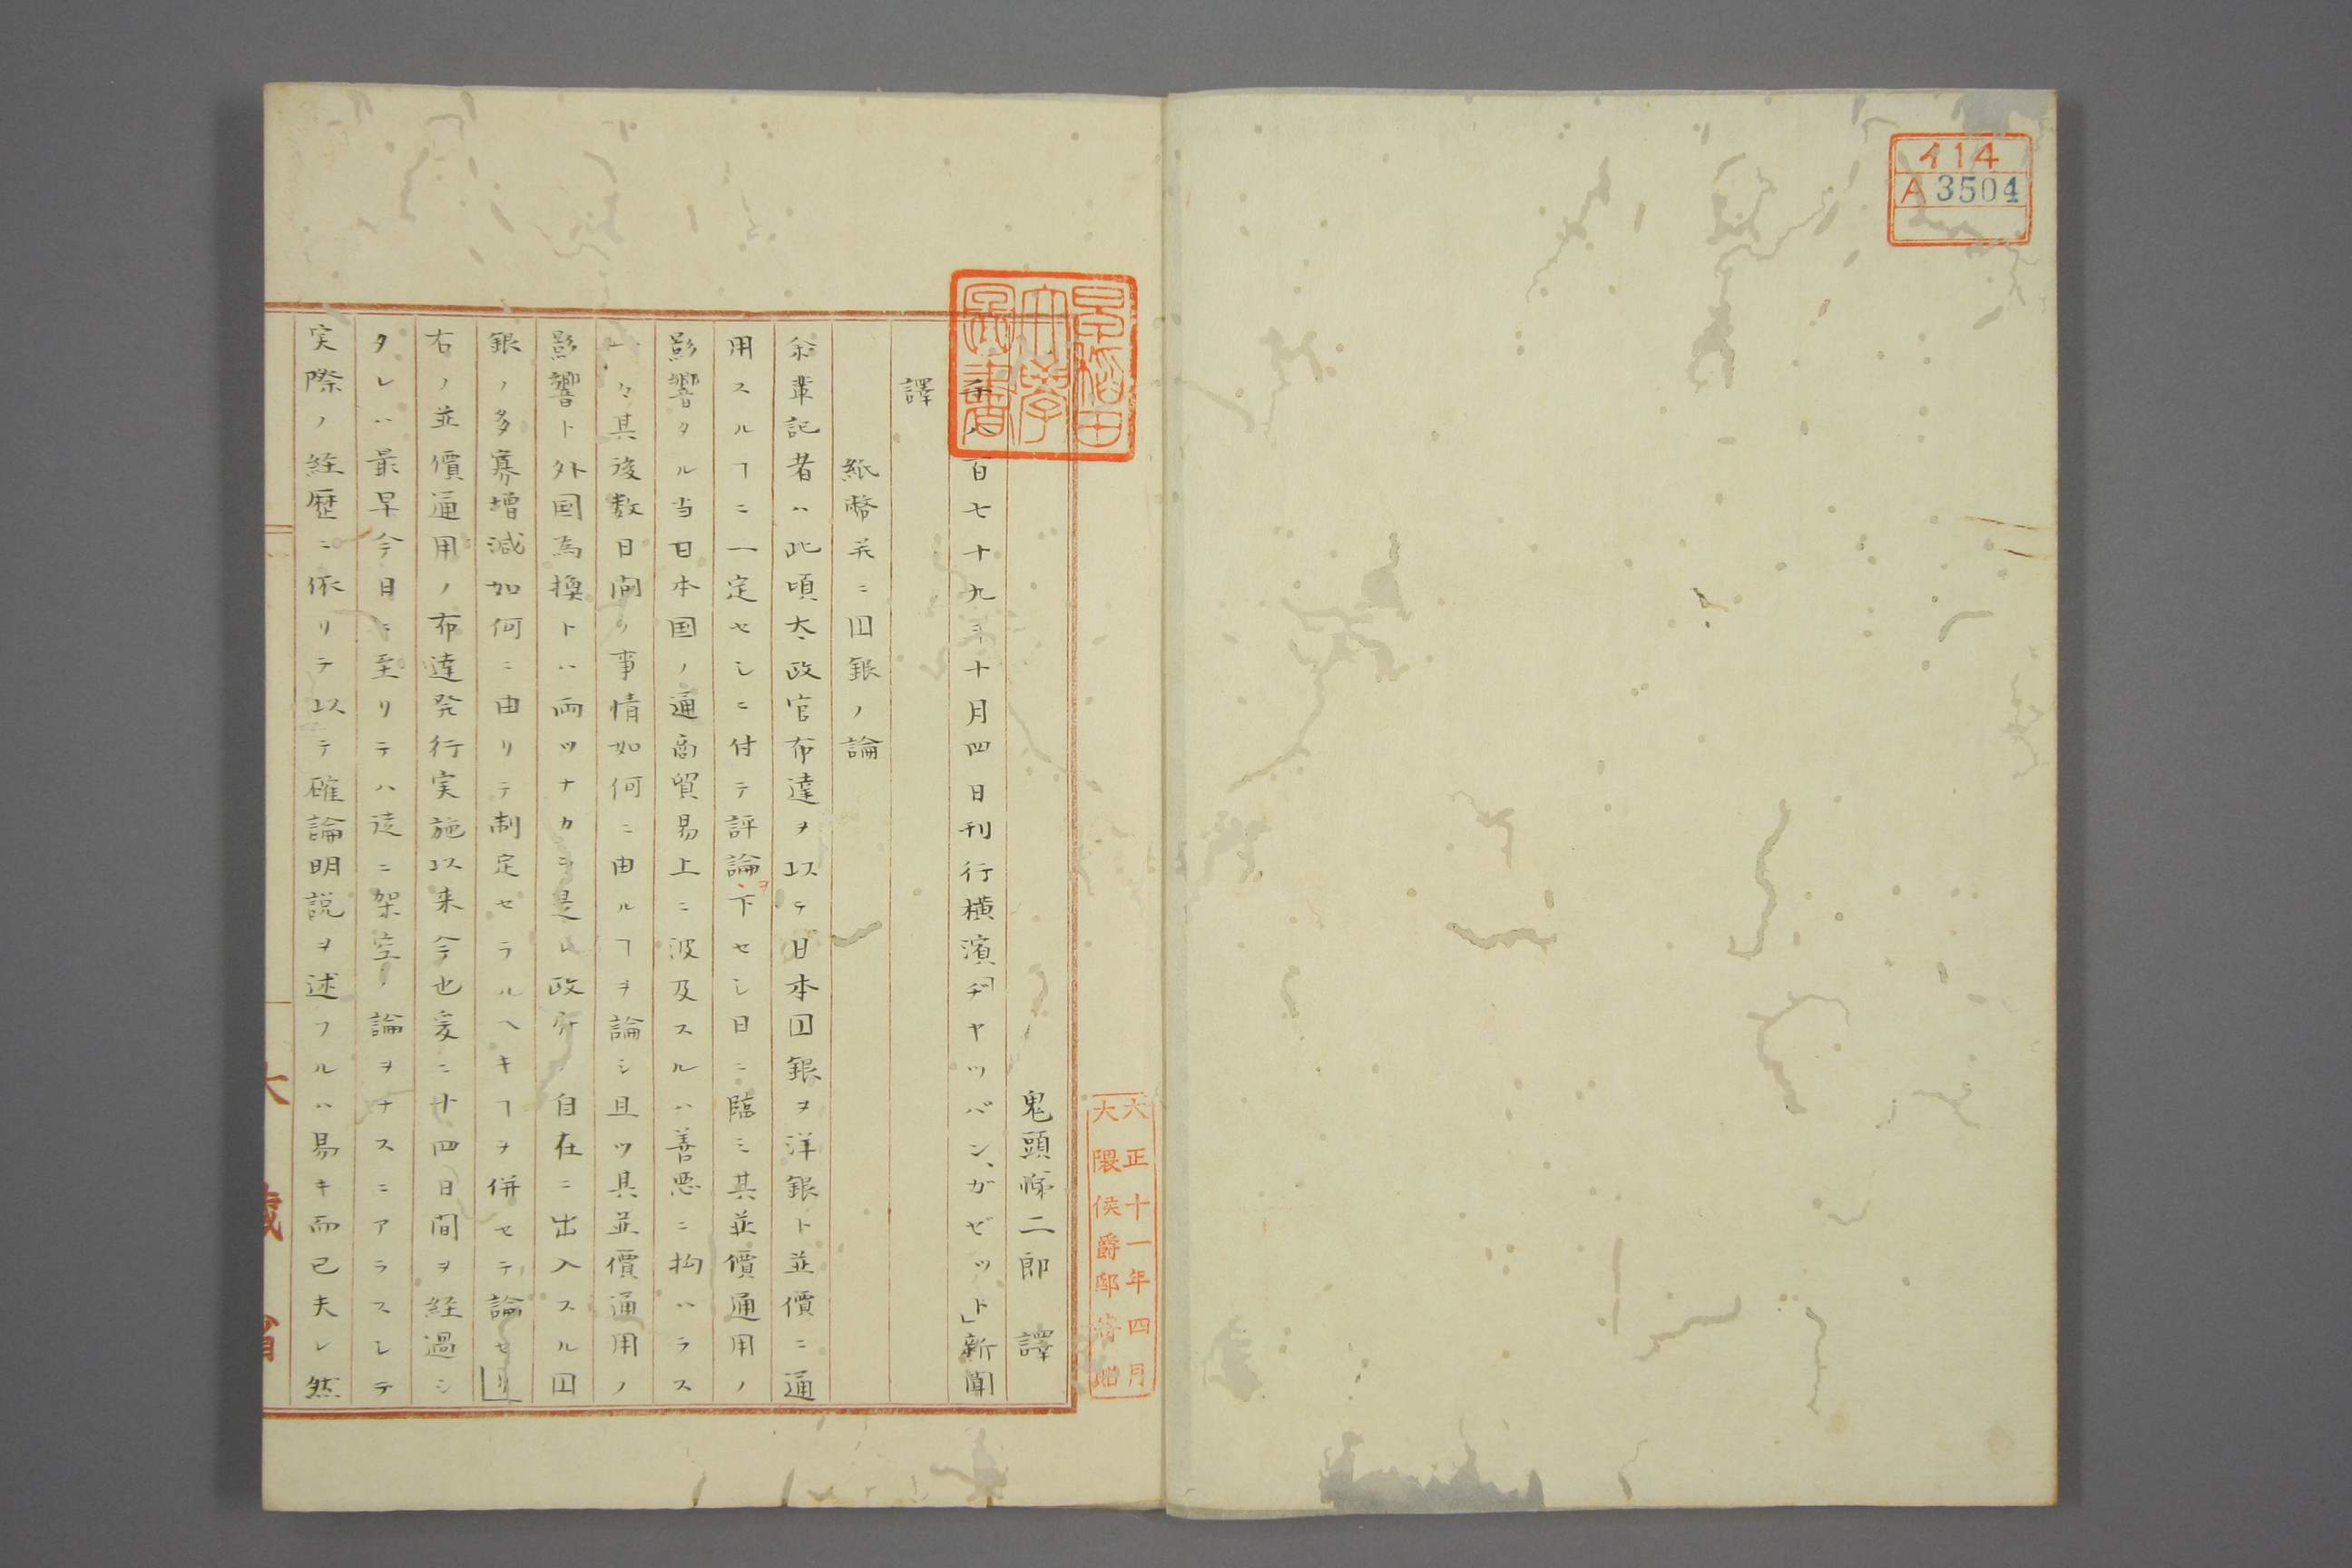 イ14
A3504
大正十一年四月
大隈侯爵邸寄贈
早稲田
大學
圖書
鬼頭悌二郎 譯
千八百七十九年十月四日刊行横濱「ヂヤツパン、ガゼツト」新聞
譯
紙幣并ニ囗銀ノ論
余輩記者ハ此頃太政官布達ヲ以テ日本囗銀ヲ洋銀ト並價ニ通
用スルヿニ一定セシニ付テ評論ヲ下セシ日ニ臨ミ其並價通用ノ
影響タル当日本国ノ通商貿易上ニ波及スルハ善悪ニ拘ハラス
一々其後数日間ノ事情如何ニ由ルヿヲ論シ且ツ其並價通用ノ
影響ト外国為換トハ両ツナカラ是レ政府ノ自在ニ出入スル囗
銀ノ多寡増減如何ニ由リテ制定セラルヘキヿヲ併セテ論セリ」
右ノ並價通用ノ布達発行実施以来今也爰ニ廿四日間ヲ経過シ
タレハ最早今日ニ至リテハ遠ニ架空ノ論ヲナスニアラスシテ
実際ノ経歴ニ依リテ以テ確論明説ヲ述フルハ易キ而已夫レ然
大藏省